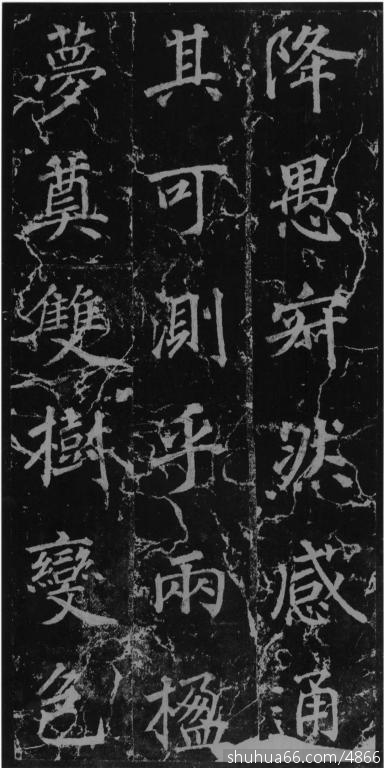 降愚寂然感通
其可測乎兩楹
夢奠雙樹變色
shuhua66.com/4866